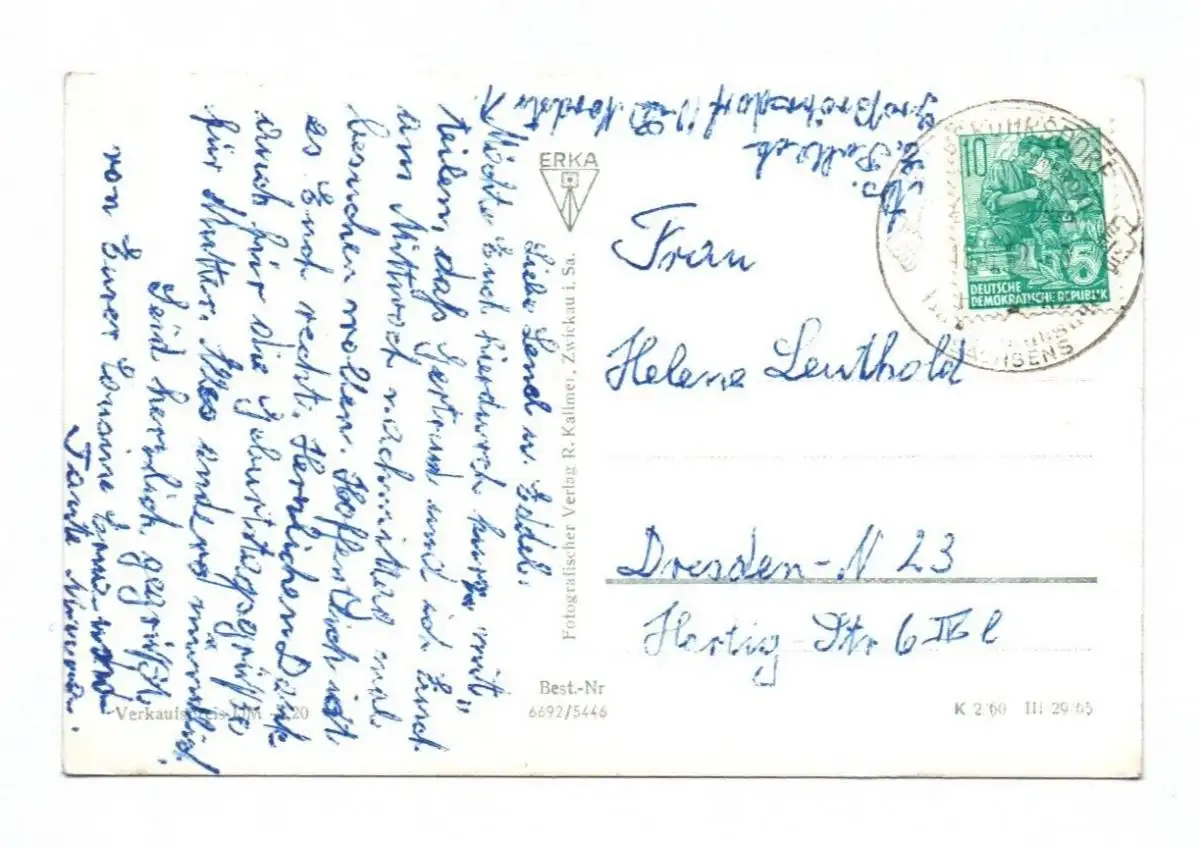 Großröhrsdorf
Liebe Lend u. Edel.
Möchte Euch hierdurch kurz mit„
teilen, daß Gertrud und ich Euch
am Mittwoch nachmittag mal
besuchen wollen. Hoffentlich ist
es Euch recht. Herzlichen Dank
auch für die Geburtstagsgrüße
für Mutter. Alles andere mündlich
Seid herzlich gegrüßt
von Eurer und
Tante
ERKA
Fotografischer Verlag R. Kallmer, Zwickau i. Sa.
Best.-Nr
6692/5446
Verkaufspreis DM -,20
10
5
DEUTSCHE
DEMOKRATISCHE REPUBLIK
SACHSENS
Frau
Helene Leuthold
Dresden-N 23
Hertig-Str 6 IV l
K 2/60 III 29/65